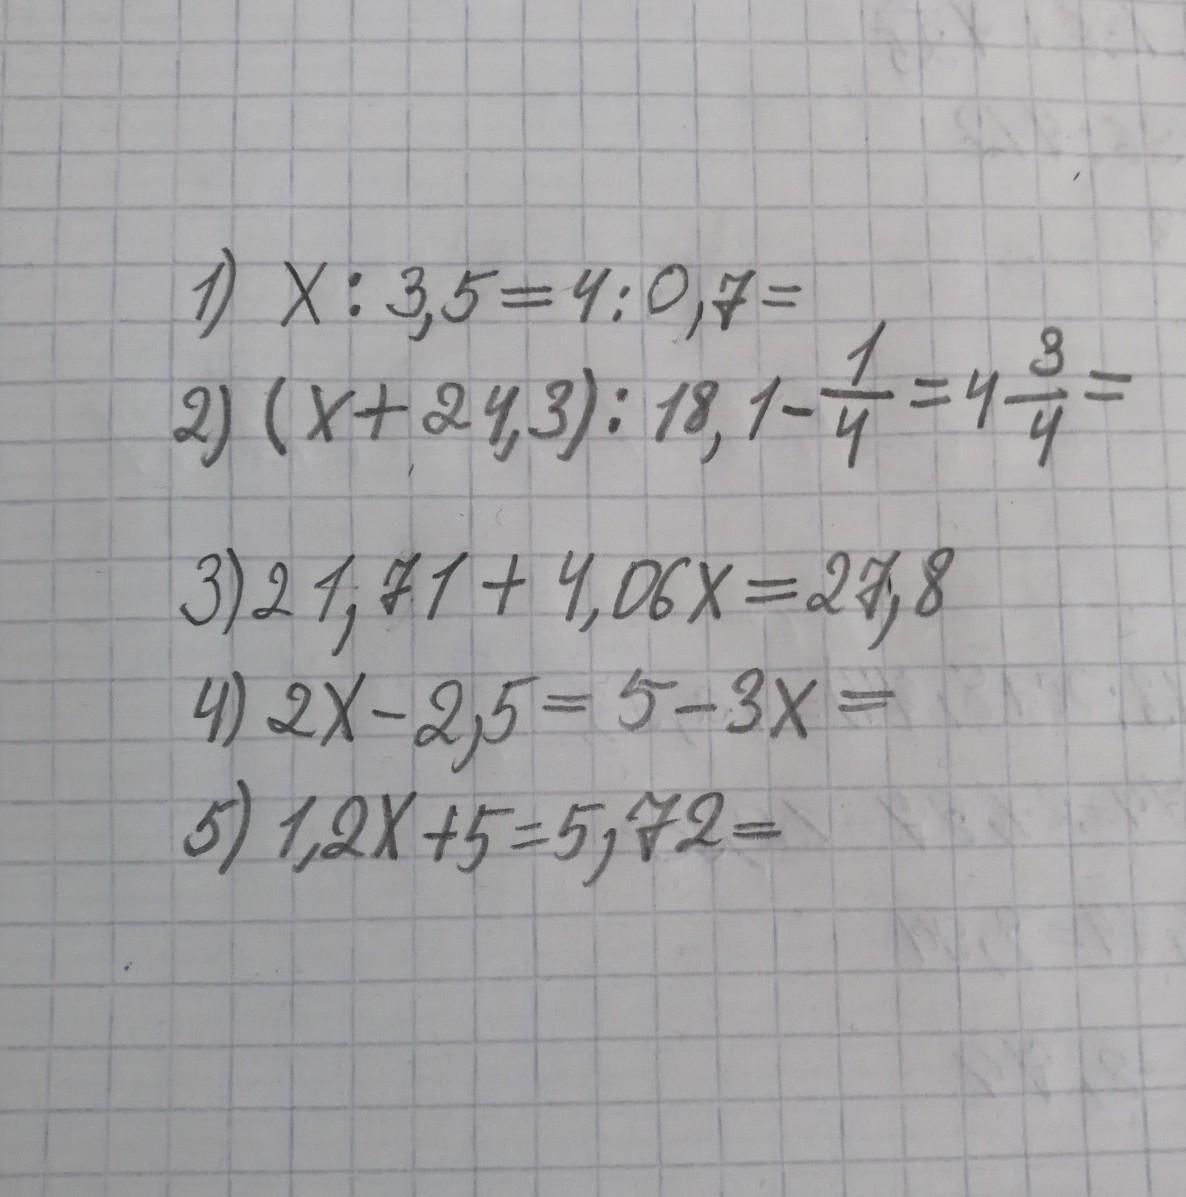 1) x : 3,5 = 4 : 0,7 =
2) (x + 24,3) : 18,1 - 1/4 = 4 3/4 =
3) 21,71 + 4,06x = 27,8
4) 2x - 2,5 = 5 - 3x =
5) 1,2x + 5 = 5,72 =